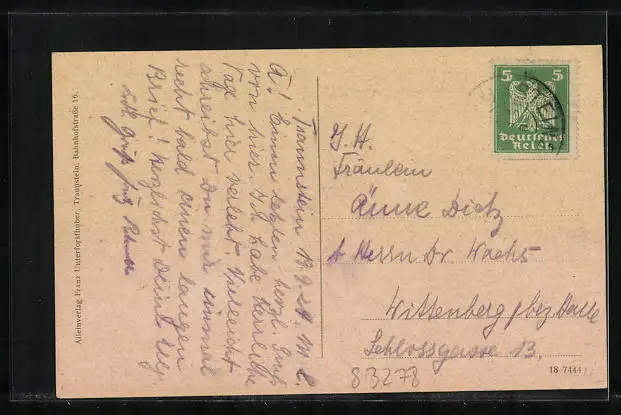 Traunstein 19.9.24. M. L.
A! Einen letzten herzl. Gruß
von hier. Ich habe herrliche
Tage hier verlebt. Vielleicht
schreibst Du mir einmal
recht bald einen langen
Brief! Herzlichst Deine
Gruß
Alleinverlag Franz Unterforsthuber, Traunstein, Bahnhofstraße 16.
5 5
Deutsches
Reich
Fräulein
Änne Dietz
b Herrn Dr. Wachs
Wittenberg, bez. Halle
Schlossgasse 13.
83278
18 7444